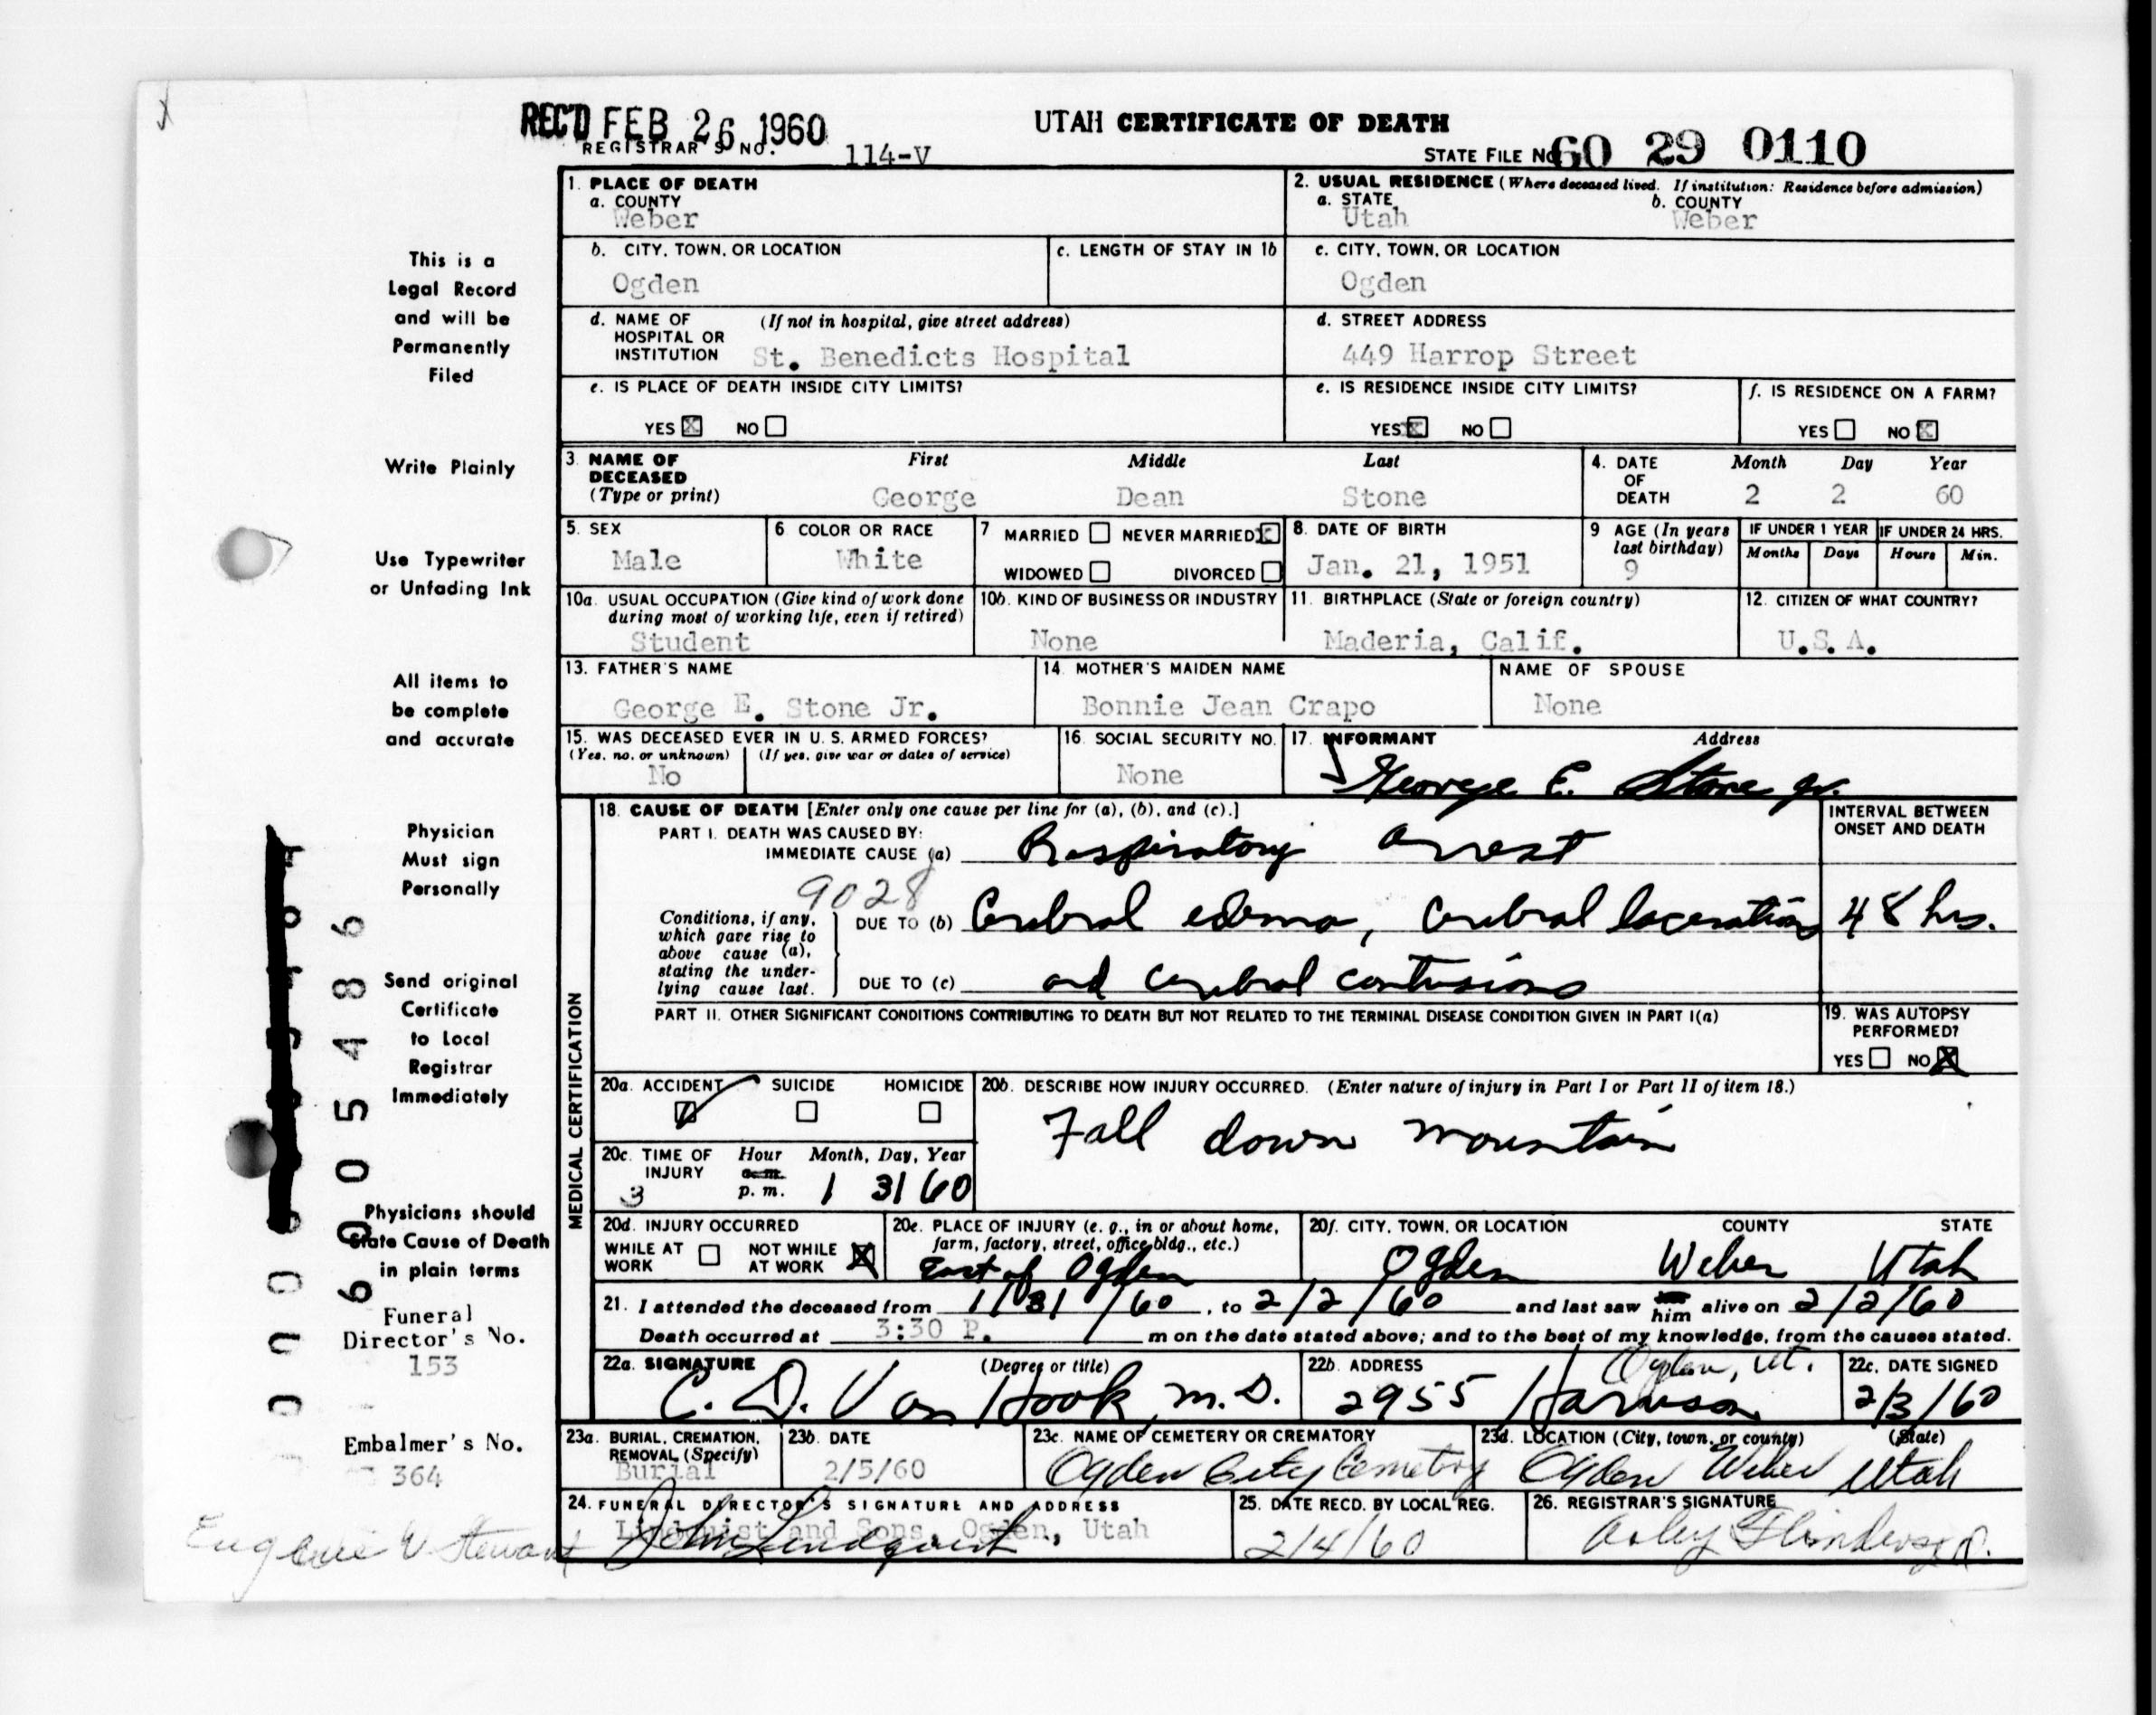 REC'D FEB 26 1960
UTAH CERTIFICATE OF DEATH
REGISTRAR'S NO. 114-V
STATE FILE NO. 60 29 0110
This is a
Legal Record
and will be
Permanently
Filed
Write Plainly
Use Typewriter
or Unfading Ink
All items to
be complete
and accurate
Physician
Must sign
Personally
Send original
Certificate
to Local
Registrar
Immediately
Physicians should
State Cause of Death
in plain terms
Funeral
Director's No.
153
Embalmer's No.
364
Eugene W Stewart
6005486
1. PLACE OF DEATH
a. COUNTY
Weber
2. USUAL RESIDENCE (Where deceased lived. If institution: Residence before admission)
a. STATE b. COUNTY
Utah Weber
b. CITY, TOWN, OR LOCATION
Ogden
c. LENGTH OF STAY IN 1b
c. CITY, TOWN, OR LOCATION
Ogden
d. NAME OF (If not in hospital, give street address)
HOSPITAL OR
INSTITUTION St. Benedicts Hospital
d. STREET ADDRESS
449 Harrop Street
e. IS PLACE OF DEATH INSIDE CITY LIMITS?
YES X NO
e. IS RESIDENCE INSIDE CITY LIMITS?
YES X NO
f. IS RESIDENCE ON A FARM?
YES NO X
3. NAME OF First Middle Last
DECEASED
(Type or print) George Dean Stone
4. DATE Month Day Year
OF
DEATH 2 2 60
5. SEX
Male
6 COLOR OR RACE
White
7 MARRIED NEVER MARRIED X
WIDOWED DIVORCED
8. DATE OF BIRTH
Jan. 21, 1951
9 AGE (In years
last birthday)
9
IF UNDER 1 YEAR
Months Days
IF UNDER 24 HRS.
Hours Min.
10a. USUAL OCCUPATION (Give kind of work done
during most of working life, even if retired)
Student
10b. KIND OF BUSINESS OR INDUSTRY
None
11. BIRTHPLACE (State or foreign country)
Maderia, Calif.
12. CITIZEN OF WHAT COUNTRY?
U.S.A.
13. FATHER'S NAME
George E. Stone Jr.
14. MOTHER'S MAIDEN NAME
Bonnie Jean Crapo
NAME OF SPOUSE
None
15. WAS DECEASED EVER IN U. S. ARMED FORCES?
(Yes, no, or unknown) (If yes, give war or dates of service)
No
16. SOCIAL SECURITY NO.
None
17. INFORMANT Address
George E. Stone Jr.
MEDICAL CERTIFICATION
18. CAUSE OF DEATH [Enter only one cause per line for (a), (b), and (c).]
INTERVAL BETWEEN
ONSET AND DEATH
PART I. DEATH WAS CAUSED BY:
IMMEDIATE CAUSE (a) Respiratory arrest
9028
Conditions, if any,
which gave rise to
above cause (a),
stating the under-
lying cause last.
DUE TO (b) Cerebral edema, Cerebral lacerations 48 hrs.
DUE TO (c) and cerebral contusions
PART II. OTHER SIGNIFICANT CONDITIONS CONTRIBUTING TO DEATH BUT NOT RELATED TO THE TERMINAL DISEASE CONDITION GIVEN IN PART I(a)
19. WAS AUTOPSY
PERFORMED?
YES NO X
20a. ACCIDENT SUICIDE HOMICIDE
20b. DESCRIBE HOW INJURY OCCURRED. (Enter nature of injury in Part I or Part II of item 18.)
Fall down mountain
20c. TIME OF Hour Month, Day, Year
INJURY a.m.
3 p. m. 1 31 60
20d. INJURY OCCURRED
WHILE AT WORK NOT WHILE AT WORK X
20e. PLACE OF INJURY (e. g., in or about home,
farm, factory, street, office bldg., etc.)
East of Ogden
20f. CITY, TOWN, OR LOCATION COUNTY STATE
Ogden Weber Utah
21. I attended the deceased from 1/31/60, to 2/2/60 and last saw him alive on 2/2/60
Death occurred at 3:30 P. m on the date stated above; and to the best of my knowledge, from the causes stated.
22a. SIGNATURE (Degree or title)
C. D. Van Hook, M.D.
22b. ADDRESS Ogden, Ut.
2955 Harrison
22c. DATE SIGNED
2/3/60
23a. BURIAL, CREMATION,
REMOVAL (Specify)
Burial
23b. DATE
2/5/60
23c. NAME OF CEMETERY OR CREMATORY
Ogden City Cemetery
23d. LOCATION (City, town, or county) (State)
Ogden Weber Utah
24. FUNERAL DIRECTOR'S SIGNATURE AND ADDRESS
Lindquist and Sons, Ogden, Utah
John Lindquist
25. DATE RECD. BY LOCAL REG.
2/4/60
26. REGISTRAR'S SIGNATURE